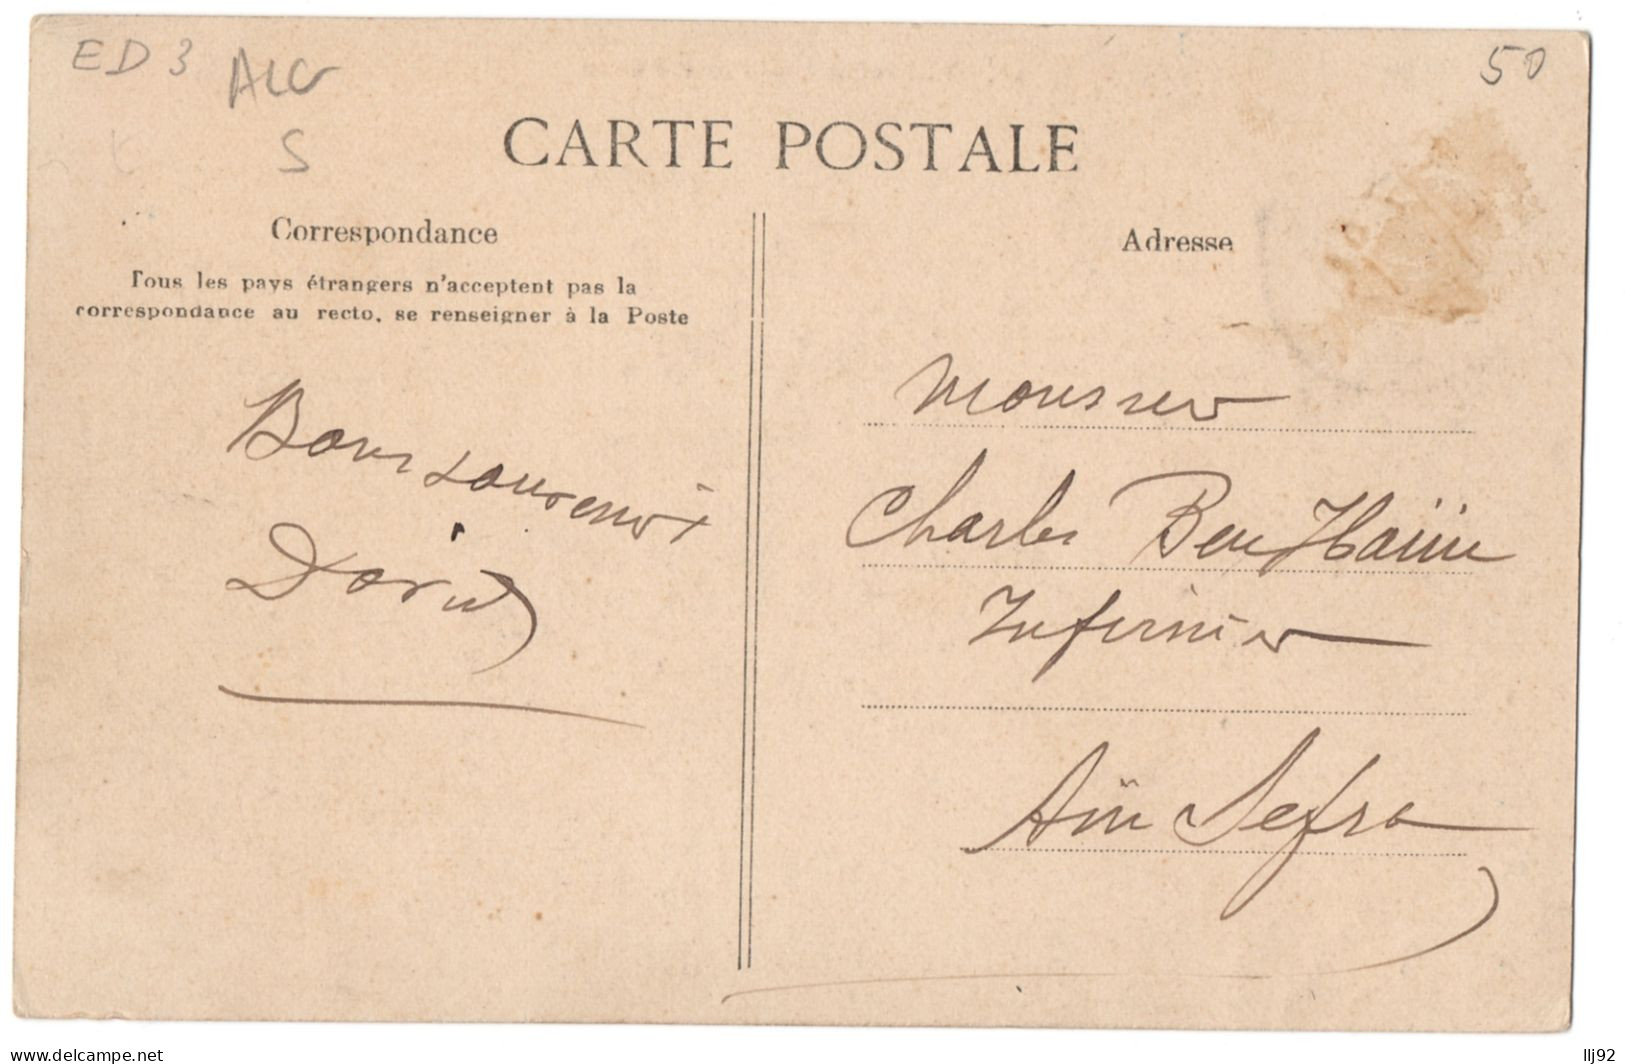 ED 3
ALG
S
50
CARTE POSTALE
Correspondance
Tous les pays étrangers n'acceptent pas la
correspondance au recto, se renseigner à la Poste
Adresse
Bons souvenirs
David
Monsieur
Charles Ben Haïm
Infirmier
Aïn Sefra
delcampe.net
llj92